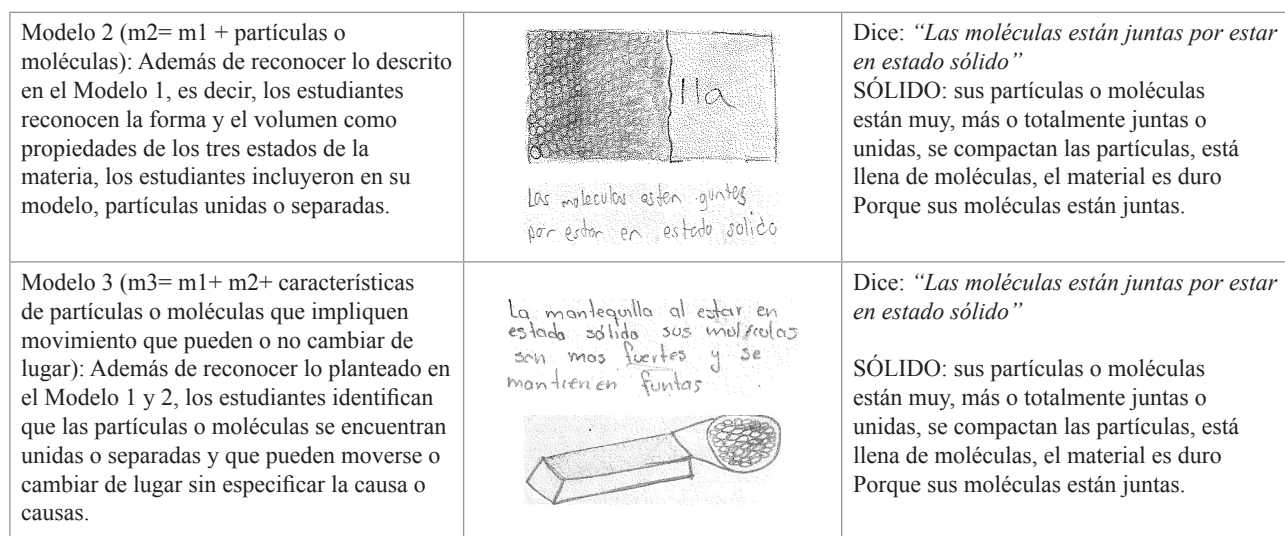 Modelo 2 (m2= m1 + partículas o
moléculas): Además de reconocer lo descrito
en el Modelo 1, es decir, los estudiantes
reconocen la forma y el volumen como
propiedades de los tres estados de la
materia, los estudiantes incluyeron en su
modelo, partículas unidas o separadas.
11a
Las moleculas estan guntas
por estar en estado solido
Dice: “Las moléculas están juntas por estar
en estado sólido”
SÓLIDO: sus partículas o moléculas
están muy, más o totalmente juntas o
unidas, se compactan las partículas, está
llena de moléculas, el material es duro
Porque sus moléculas están juntas.
Modelo 3 (m3= m1+ m2+ características
de partículas o moléculas que impliquen
movimiento que pueden o no cambiar de
lugar): Además de reconocer lo planteado en
el Modelo 1 y 2, los estudiantes identifican
que las partículas o moléculas se encuentran
unidas o separadas y que pueden moverse o
cambiar de lugar sin especificar la causa o
causas.
La mantequilla al estar en
estado sólido sus moléculas
son mas fuertes y se
mantienen funtas
Dice: “Las moléculas están juntas por estar
en estado sólido”
SÓLIDO: sus partículas o moléculas
están muy, más o totalmente juntas o
unidas, se compactan las partículas, está
llena de moléculas, el material es duro
Porque sus moléculas están juntas.